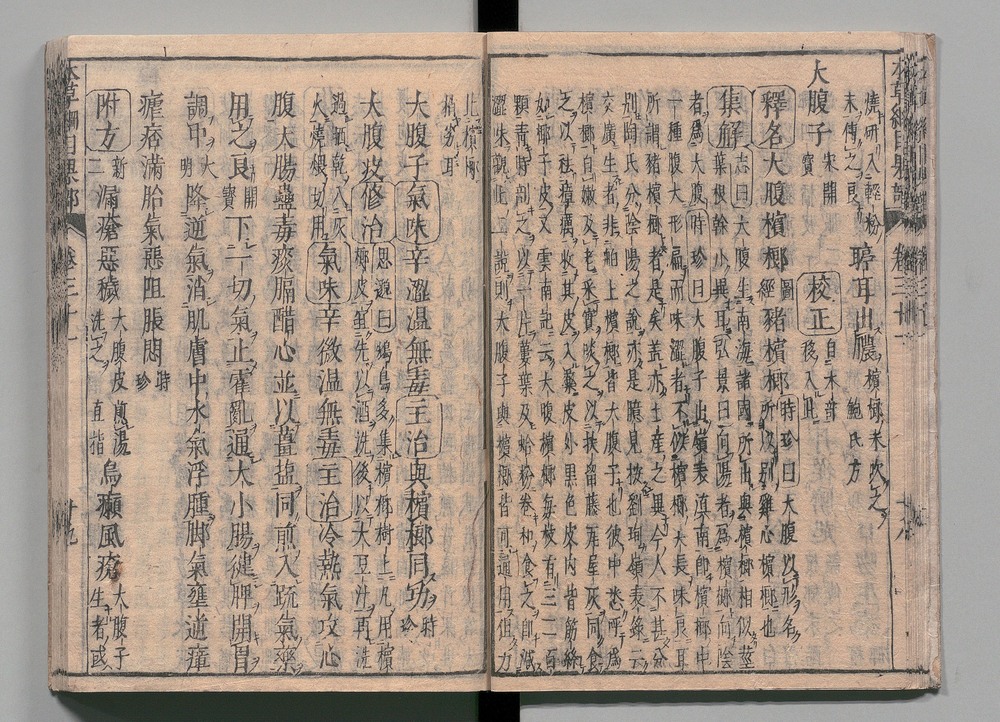 燒研入輕粉
末傅之良
聤耳出膿
檳榔末吹之
鮑氏方
大腹子
宋開
寶
校正
自木部
移入此
釋名
大腹檳榔
圖
經
豬檳榔
時珍曰大腹以形名
所以別雞心檳榔也
集解
志曰大腹生南海諸國所出與檳榔相似莖
葉根幹小異耳弘景曰向陽者為檳榔向陰
者為大腹時珍曰大腹子出嶺表滇南即檳榔中
一種腹大形扁而味澀者不似檳榔尖長味良耳
所謂豬檳榔者是矣蓋亦土産之異今人不甚分
別陶氏分陰陽之說亦是臆見按劉恂嶺表錄云
交廣生者非舶上檳榔皆大腹子也彼中悉呼為
檳榔自嫩及老采實啖之以扶留藤瓦屋灰同食
之以祛瘴癘收其皮入藥皮外黑色皮內皆筋絲
如椰子皮又雲南記云大腹檳榔每枝有三二百
顆青時剖之以一片蔞葉及蛤粉卷和食之即減
澀味觀此二說則大腹子與檳榔皆可通用但力
比檳榔
稍劣耳
大腹子
氣味
辛澀溫無毒
主治
與檳榔同功
時
珍
大腹皮
修治
思邈曰鴆鳥多集檳榔樹上凡用檳
榔皮宜先以酒洗後以大豆汁再洗
過晒乾入灰
火燒煨切用
氣味
辛微溫無毒
主治
冷熱氣攻心
腹大腸蠱毒痰膈醋心並以薑鹽同煎入疏氣藥
用之良
開
寶
下一切氣止霍亂通大小腸健脾開胃
調中
大
明
降逆氣消肌膚中水氣浮腫脚氣壅逆瘴
瘧痞滿胎氣惡阻脹悶
時
珍
附方
新
二
漏瘡惡穢
大腹皮煎湯
洗之
直指
烏癩風瘡
大腹子
生者或